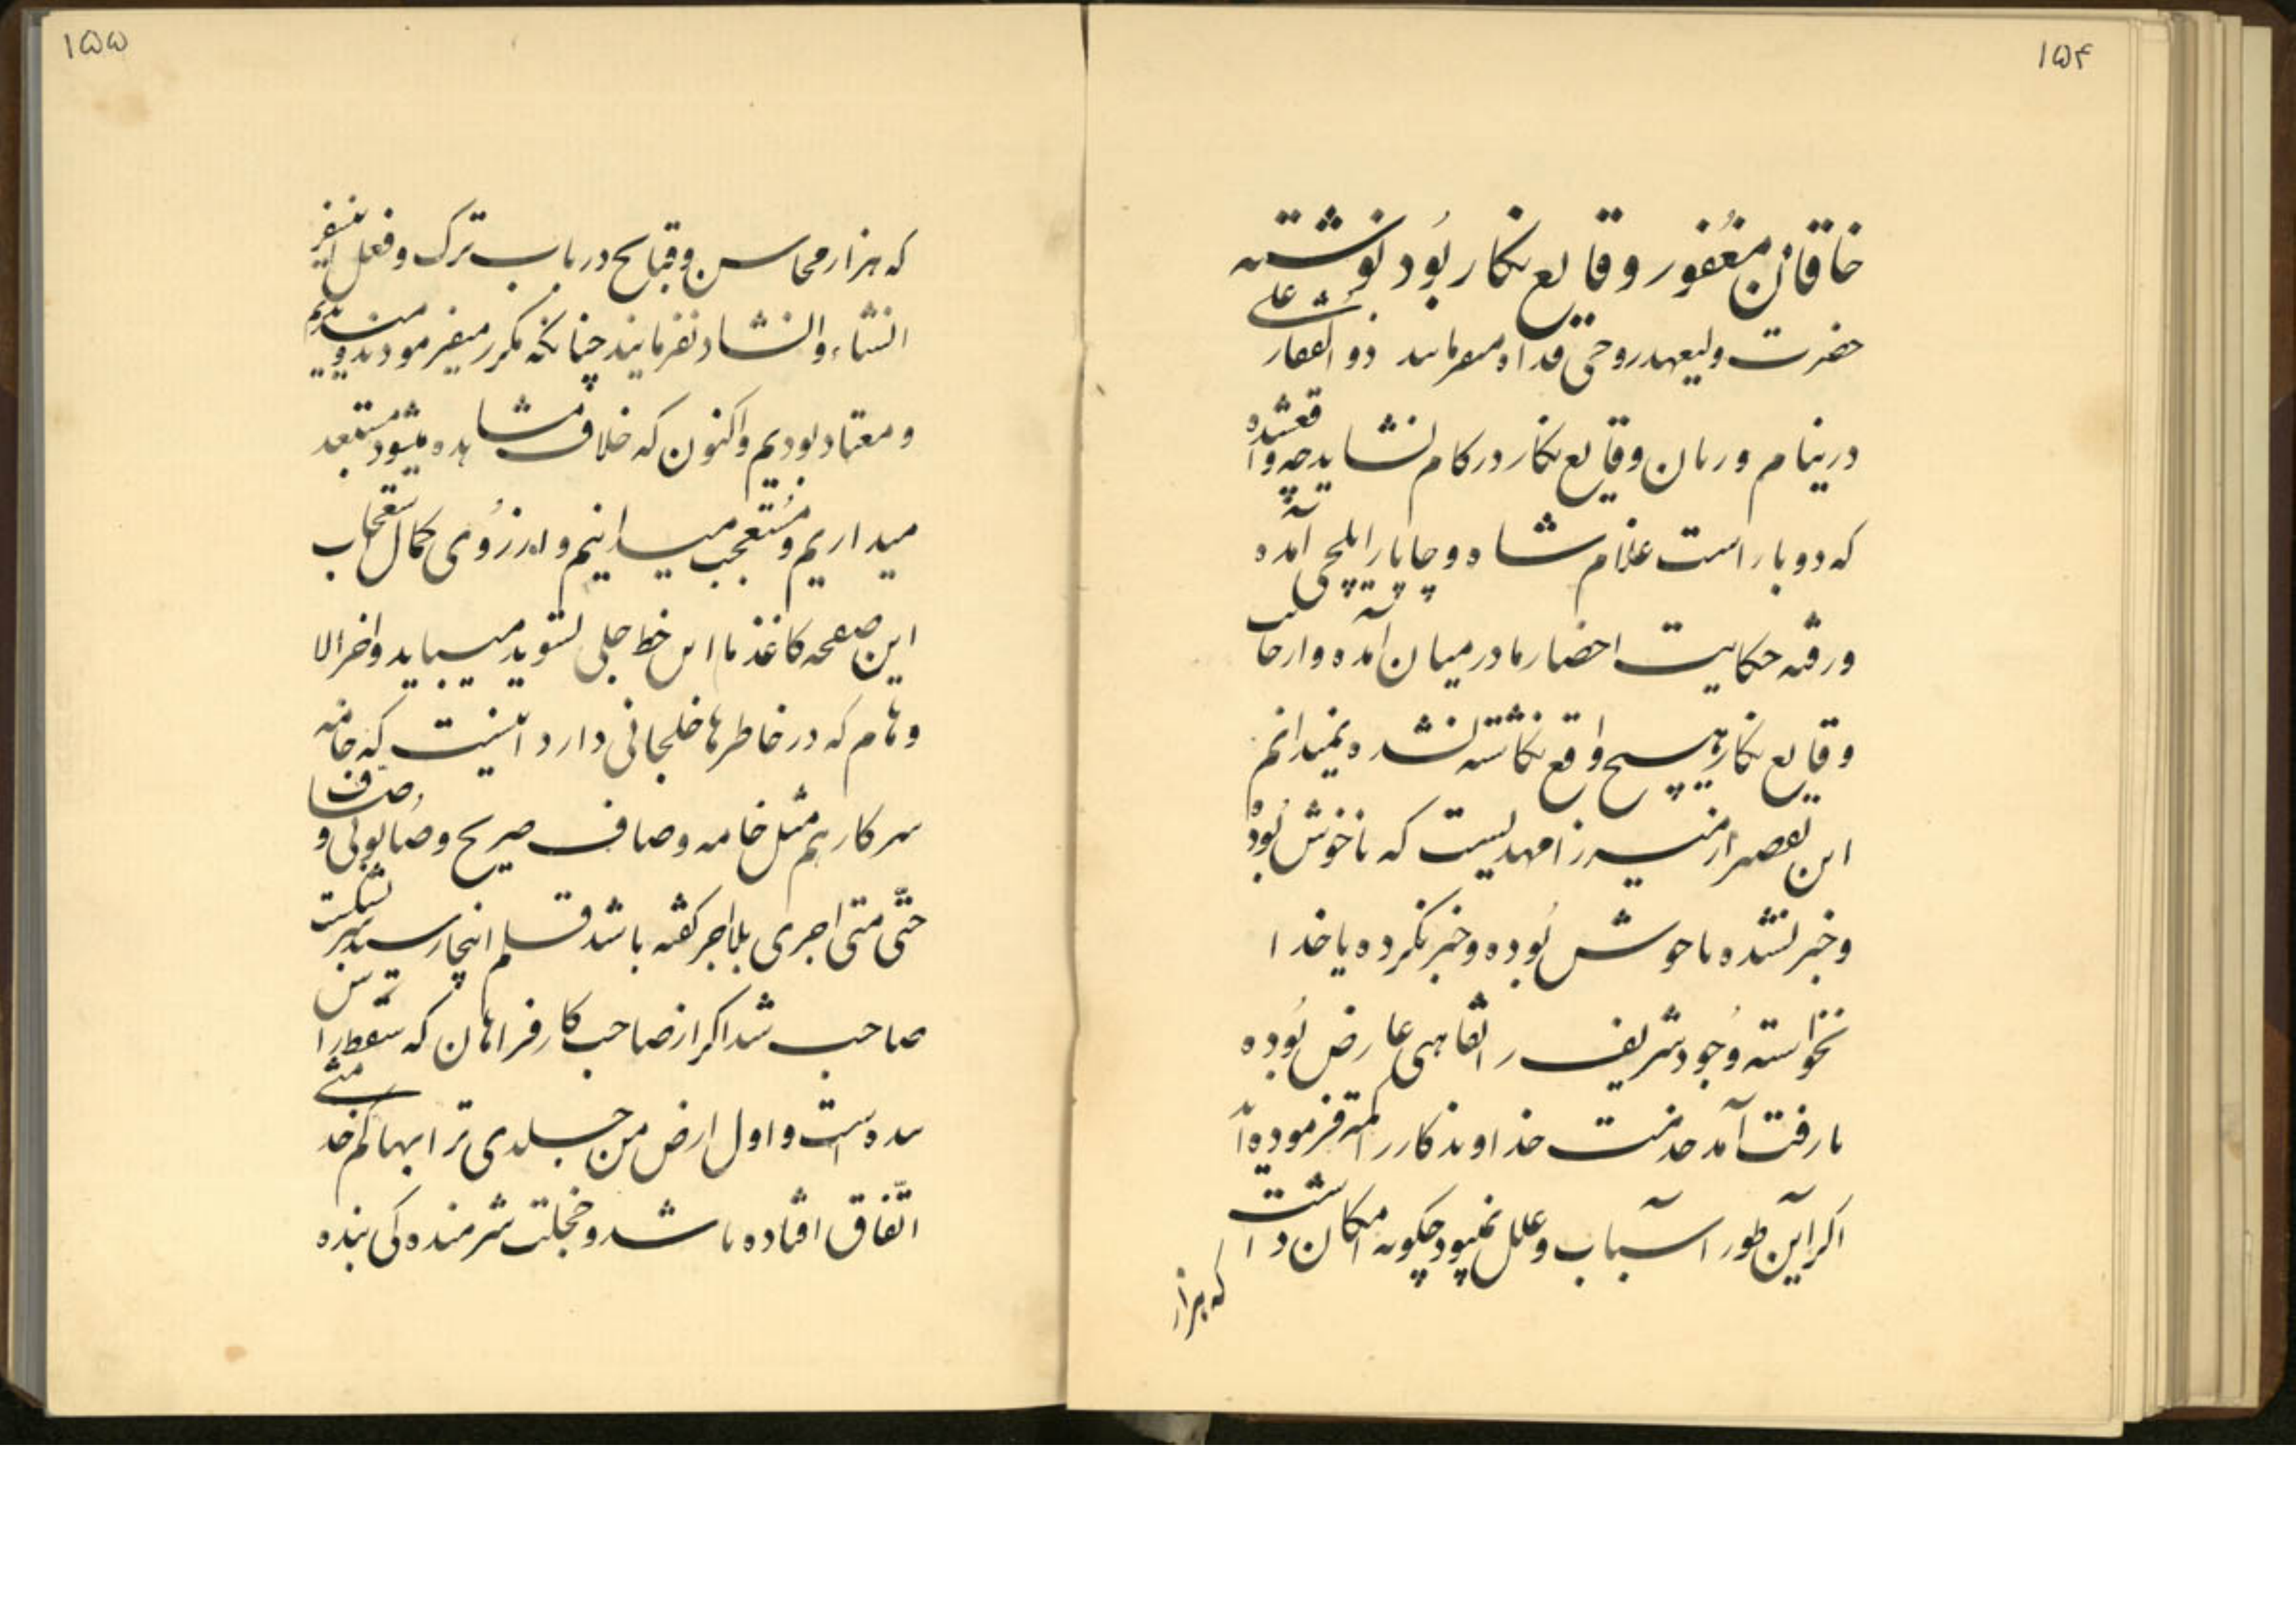 ۱۵۴
خاقان مغفور وقایع نکار بود نوشته
حضرت ولیعهد روحی فداه میفرمایند ذو الفقار علی
درنیام و زبان وقایع نکار در کام نشاید چه واقعشده
که دو بار است غلام شاه و چاپار ایلچی آمده
ورفته حکایت احضار ما در میان آمده و از جانب
وقایع نکار هیچ واقع نکاشته نشده نمیدانم
این تقصیر از میرزا مهدیست که ناخوش بوده
و خبر نشده یا خوش بوده و خبر نکرده یا خدا
نخواسته وجود شریف را نقاهی عارض بوده
یا رفت آمد خدمت خداوندکار را متر فرموده اند
اکر این طور اسباب و علل نمیبود چکونه امکان داشت
که هزار
۱۵۵
که هزار محاسن و قبایح در باب ترک و فعل اینسفر
انشاء و انشاد نفرمایند چنانکه مکرر میفرمودید و میدیدیم
و معتاد بودیم و اکنون که خلاف مشاهده میشود مستبعد
میداریم و مستعجب میدانیم و از روی کمال استعجاب
این صفحه کاغذ با این خط جلی تسوید میبابد و اخر الا
وهام که در خاطرها خلجانی دارد اینست که خامه
سرکار هم مثل خامه وصاف صریح و صابونی وصاف
حتّی متی اجری بلا اجر کفته باشد قلم اینجا رسید سر بشکست
صاحب شد اکر از صاحب کار فراهان که سقط را
شده است و اول ارض من جلدی ترابها کم خد
اتّفاق افتاده باشد و خجلت شرمنده کی بنده